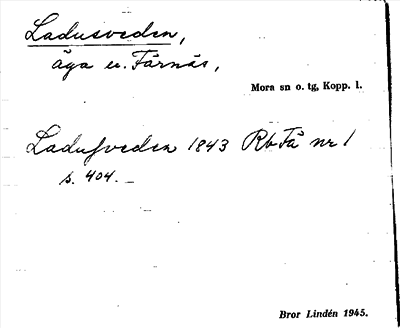 Ladusveden,
äga u. Färnäs,
Mora sn o. tg, Kopp. l.
Ladusveden 1843 RbFä nr 1
s. 404.
Bror Lindén 1945.